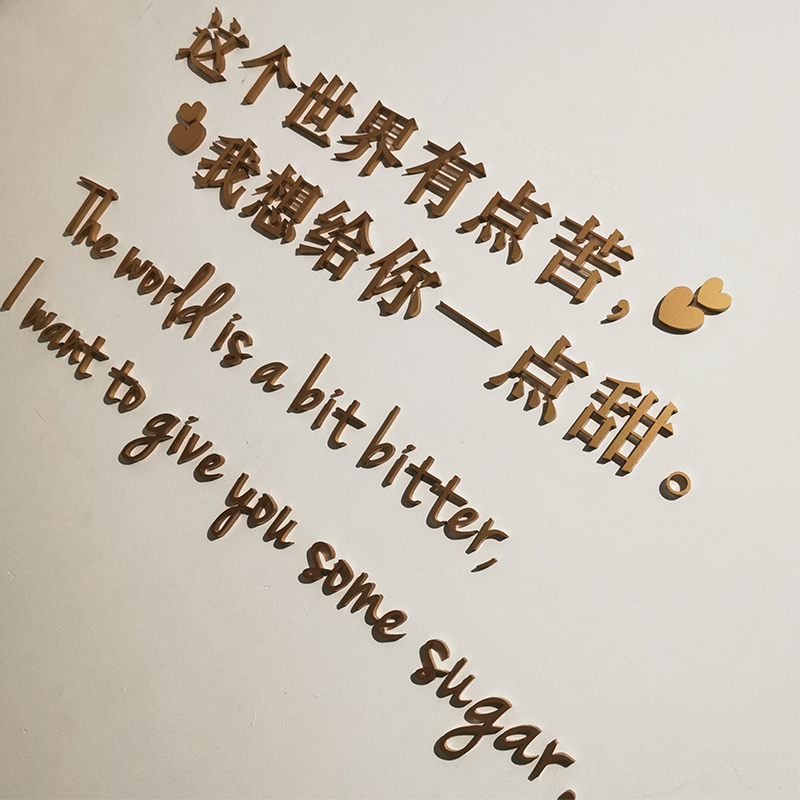 这个世界有点苦，
我想给你一点甜。
The world is a bit bitter,
I want to give you some sugar,